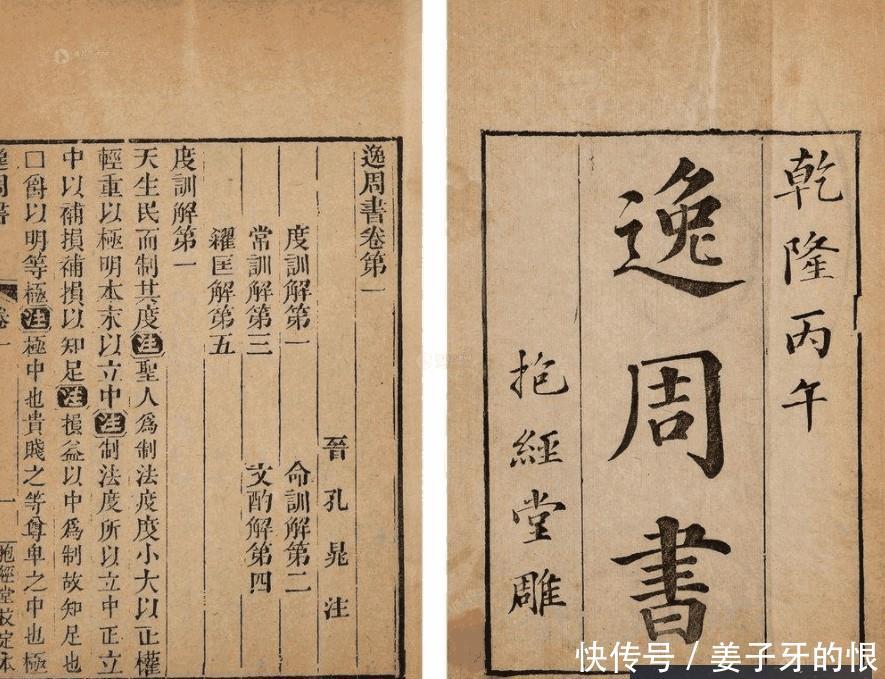 乾隆丙午
逸周書
抱經堂雕
逸周書卷第一
晉 孔 晁 注
度訓解第一 命訓解第二
常訓解第三 文酌解第四
糴匡解第五
度訓解第一
天生民而制其度注聖人爲制法度度小大以正權
輕重以極明本末以立中注制法度所以立中正立
中以補損補損以知足注損益以中爲制故知足也
囗爵以明等極注極中也貴賤之等尊卑之中也極
逸周書 卷一 一 抱經堂校定本
快传号 / 姜子牙的恨